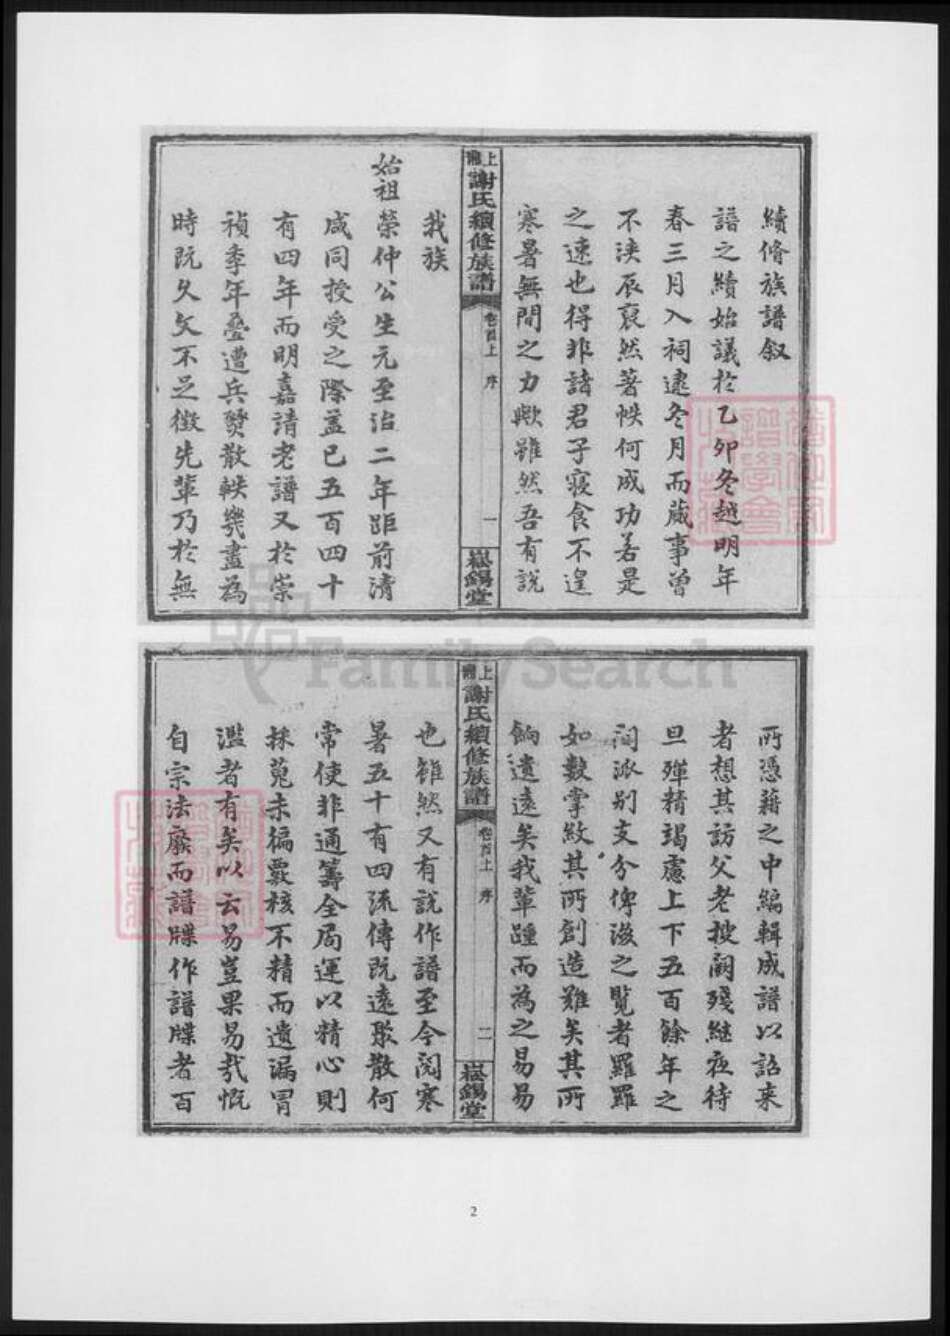 續脩族譜叙
譜之續始議於乙卯冬越明年
春三月入祠逮冬月而蕆事曾
不浹辰裒然著帙何成功若是
之速也得非諸君子寢食不遑
寒暑無間之力歟雖然吾有說
上 謝氏續修族譜 卷首上 序 一 崧錫堂
我族
始祖榮仲公生元至治二年距前清
咸同授受之際盖已五百四十
有四年而明嘉請老譜又於崇
禎季年疊遭兵燹散軼幾盡為
時既久文不足徵先輩乃於無
所憑藉之中編輯成譜以詔来
者想其訪父老搜闕殘継夜待
旦殫精竭慮上下五百餘年之
間派别支分俾後之覧者羅羅
如數掌紋其所創造難矣其所
餉遺遠矣我輩踵而為之易易
上 謝氏續修族譜 卷首上 序 二 崧錫堂
也雖然又有說作譜至今閱寒
暑五十有四流傳既遠聚散何
常使非通籌全局運以精心則
採蒐未徧覈核不精而遺漏冒
濫者有矣以云易豈果易哉慨
自宗法廢而譜牒作譜牒者百
FamilySearch
2